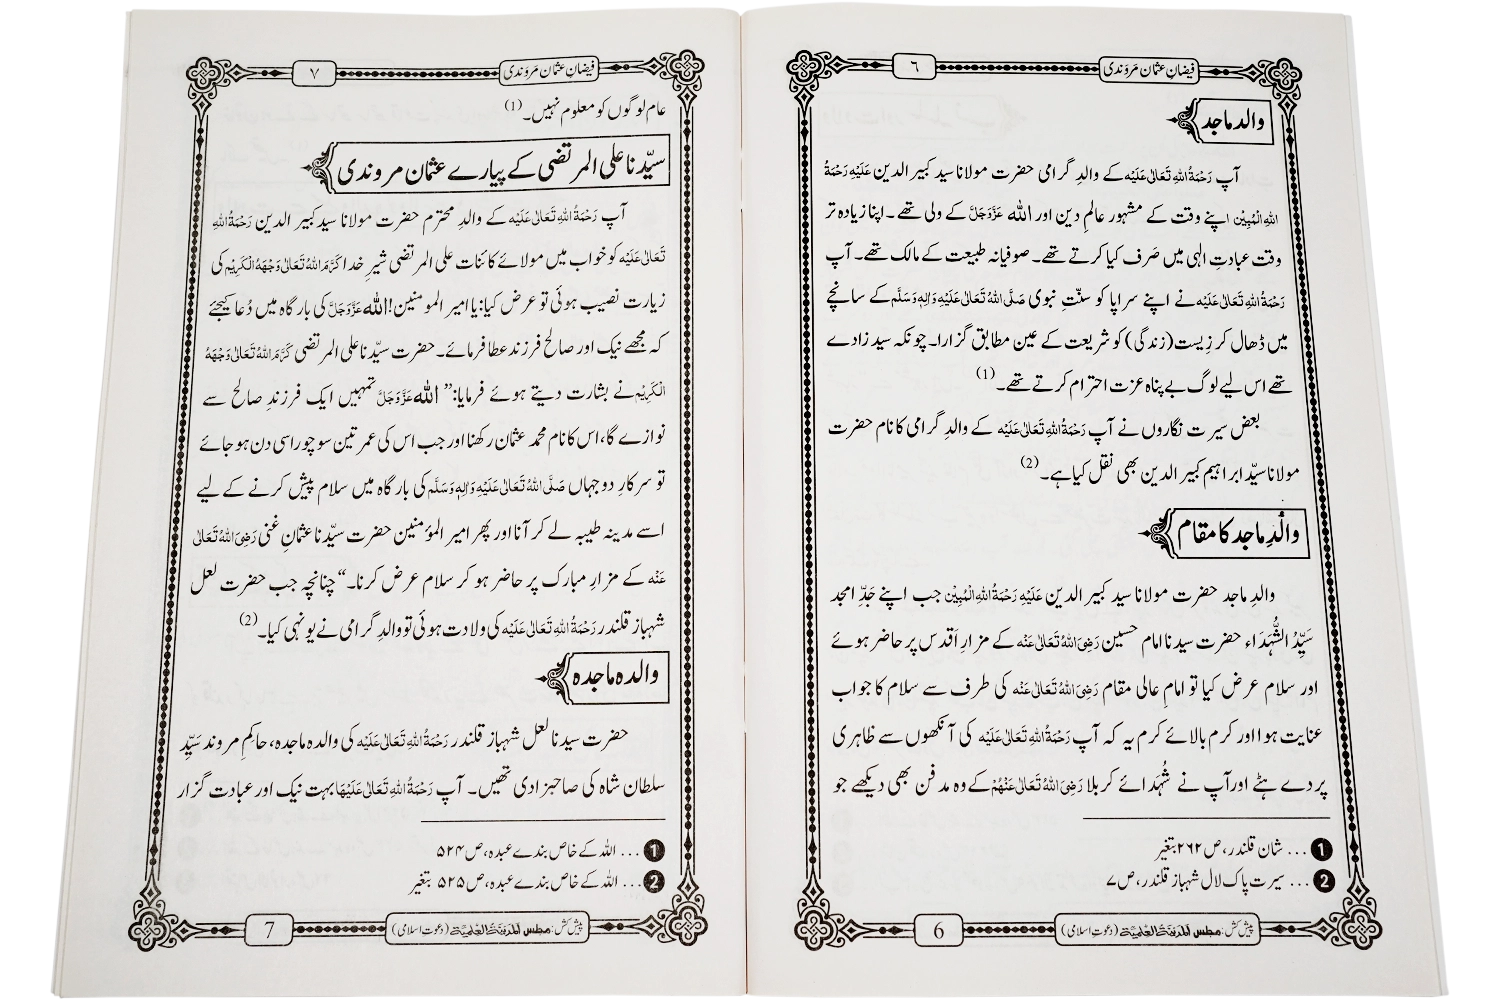 فیضانِ عثمان مَروَندی
٦
والد ماجد
آپ رَحْمَةُ اللهِ تَعَالٰی عَلَيْه کے والدِ گرامی حضرت مولانا سید کبیر الدین عَلَیْہِ رَحْمَةُ
اللهِ الْمُبِيْن اپنے وقت کے مشہور عالمِ دین اور الله عَزَّوَجَلَّ کے ولی تھے ۔ اپنا زیادہ تر
وقت عبادتِ الٰہی میں صَرف کیا کرتے تھے۔ صوفیانہ طبیعت کے مالک تھے۔ آپ
رَحْمَةُ اللهِ تَعَالٰی عَلَيْه نے اپنے سراپا کو سنّتِ نبوی صَلَّی اللهُ تَعَالٰی عَلَيْهِ وَاٰلِهٖ وَسَلَّم کے سانچے
میں ڈھال کر زِیست (زندگی) کو شریعت کے عین مطابق گزارا۔ چونکہ سید زادے
تھے اس لیے لوگ بے پناہ عزت احترام کرتے تھے۔ (1)
بعض سیرت نگاروں نے آپ رَحْمَةُ اللهِ تَعَالٰی عَلَيْه کے والدِ گرامی کا نام حضرت
مولانا سیّد ابراہیم کبیر الدین بھی نقل کیا ہے۔ (2)
والِدِ ماجد کا مقام
والدِ ماجد حضرت مولانا سید کبیر الدین عَلَيْهِ رَحْمَةُ اللهِ الْمُبِيْن جب اپنے جَدِّ امجد
سَیِّدُ الشُّهَدَاء حضرت سیدنا امام حسین رَضِیَ اللهُ تَعَالٰی عَنْه کے مزارِ اَقدس پر حاضر ہوئے
اور سلام عرض کیا تو امامِ عالی مقام رَضِیَ اللهُ تَعَالٰی عَنْه کی طرف سے سلام کا جواب
عنایت ہوا اور کرم بالائے کرم یہ کہ آپ رَحْمَةُ اللهِ تَعَالٰی عَلَيْه کی آنکھوں سے ظاہری
پردے ہٹے اور آپ نے شُہَدائے کربلا رَضِیَ اللهُ تَعَالٰی عَنْهُمْ کے وہ مدفن بھی دیکھے جو
1 ... شان قلندر، ص ۲۶۲ بتغیر
2 ... سیرت پاک لال شہباز قلندر، ص ۷
پیش کش: مجلس اَلْمَدِيْنَةُ الْعِلْمِيَّة (دعوتِ اسلامی)
6
فیضانِ عثمان مَروَندی
٧
عام لوگوں کو معلوم نہیں۔ (1)
سیّدنا علی المرتضی کے پیارے عثمان مروندی
آپ رَحْمَةُ اللهِ تَعَالٰی عَلَيْه کے والدِ محترم حضرت مولانا سید کبیر الدین رَحْمَةُ اللهِ
تَعَالٰی عَلَيْه کو خواب میں مولائے کائنات علی المرتضی شیرِ خدا کَرَّمَ اللهُ تَعَالٰی وَجْهَهُ الْكَرِيْم کی
زیارت نصیب ہوئی تو عرض کیا: یا امیر المومنین! الله عَزَّوَجَلَّ کی بارگاہ میں دُعا کیجئے
کہ مجھے نیک اور صالح فرزند عطا فرمائے۔ حضرت سیّدنا علی المرتضی کَرَّمَ اللهُ تَعَالٰی وَجْهَهُ
الْكَرِيْم نے بشارت دیتے ہوئے فرمایا: ”الله عَزَّوَجَلَّ تمہیں ایک فرزندِ صالح سے
نوازے گا، اس کا نام محمد عثمان رکھنا اور جب اس کی عمر تین سو چوراسی دن ہو جائے
تو سرکارِ دو جہاں صَلَّی اللهُ تَعَالٰی عَلَيْهِ وَاٰلِهٖ وَسَلَّم کی بارگاہ میں سلام پیش کرنے کے لیے
اسے مدینہ طیبہ لے کر آنا اور پھر امیر المؤمنین حضرت سیّدنا عثمانِ غنی رَضِیَ اللهُ تَعَالٰی
عَنْه کے مزارِ مبارک پر حاضر ہو کر سلام عرض کرنا۔“ چنانچہ جب حضرت لعل
شہباز قلندر رَحْمَةُ اللهِ تَعَالٰی عَلَيْه کی ولادت ہوئی تو والدِ گرامی نے یونہی کیا۔ (2)
والدہ ماجدہ
حضرت سیدنا لعل شہباز قلندر رَحْمَةُ اللهِ تَعَالٰی عَلَيْه کی والدہ ماجدہ، حاکمِ مروند سَیِّد
سلطان شاہ کی صاحبزادی تھیں۔ آپ رَحْمَةُ اللهِ تَعَالٰی عَلَيْهَا بہت نیک اور عبادت گزار
1 ... اللہ کے خاص بندے عبدہ، ص ۵۲۴
2 ... اللہ کے خاص بندے عبدہ، ص ۵۲۵ بتغیر
پیش کش: مجلس اَلْمَدِيْنَةُ الْعِلْمِيَّة (دعوتِ اسلامی)
7